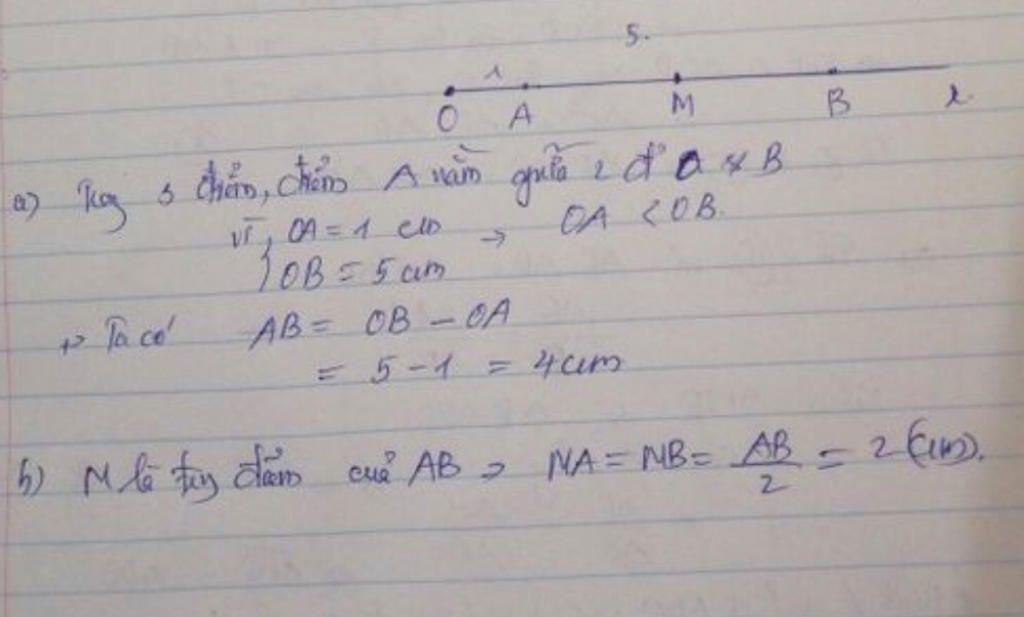 5.
1
O A M B x
a) Trog 3 điểm, điểm A nằm giữa 2 đ' O & B
vì { OA = 1 cm → OA < OB.
OB = 5 cm
+> Ta có AB = OB - OA
= 5 - 1 = 4 cm
b) M là trg điểm của AB => MA = MB = AB/2 = 2 (cm).